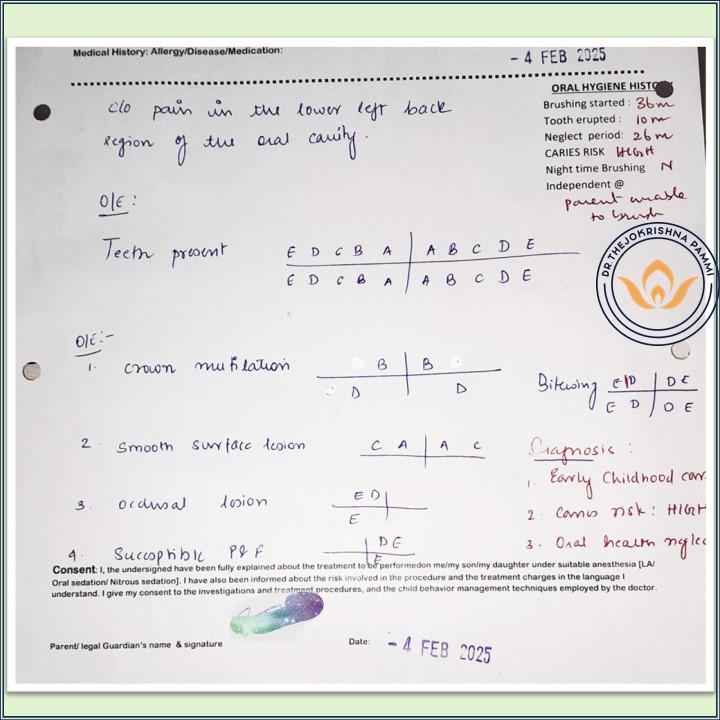 Medical History: Allergy/Disease/Medication:
- 4 FEB 2025
ORAL HYGIENE HISTORY
c/o pain in the lower left back
Brushing started : 36m
region of the oral cavity.
Tooth erupted : 10m
Neglect period: 26m
CARIES RISK HIGH
Night time Brushing N
Independent @
parent unable
to brush
O/E :
Teeth present
E D C B A | A B C D E
E D C B A | A B C D E
DR.THEJOKRISHNA PAMMI
O/E:-
1. Crown mutilation
B | B
D | D
Bitewing
E D | D E
E D | D E
2. Smooth surface lesion
C A | A C
Diagnosis :
1. Early Childhood car
3. Occlusal lesion
E D |
E |
2. Caries risk : HIGH
4. Succeptible P&F
| D E
| E
3. Oral health neglec
Consent: I, the undersigned have been fully explained about the treatment to be performedon me/my son/my daughter under suitable anesthesia [LA/
Oral sedation/ Nitrous sedation]. I have also been informed about the risk involved in the procedure and the treatment charges in the language I
understand. I give my consent to the investigations and treatment procedures, and the child behavior management techniques employed by the doctor.
Parent/ legal Guardian's name & signature
Date: - 4 FEB 2025